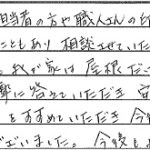 担当者の方や職人さんの
こともあり 相談させていた
。我が家は屋根だ
撃に答えていただき
をすすめていただき 今
ございました。今後も